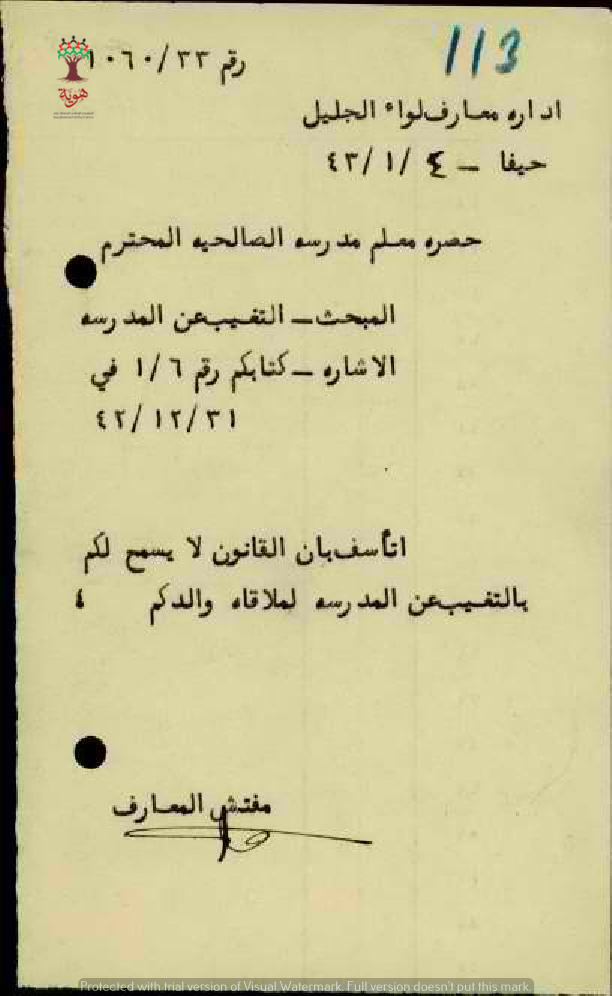 113
رقم ١٠٦٠/٣٣
هوية
اداره معارف لواء الجليل
حيفا – ٤٣/١/٤
حصره معلم مدرسه الصالحيه المحترم
المبحث – التغيب عن المدرسه
الاشاره – كتابكم رقم ١/٦ في
٤٢/١٢/٣١
اتأسف بان القانون لا يسمح لكم
بالتغيب عن المدرسه لملاقاه والدكم ٤
مفتش المعارف
Protected with trial version of Visual Watermark. Full version doesn't put this mark.